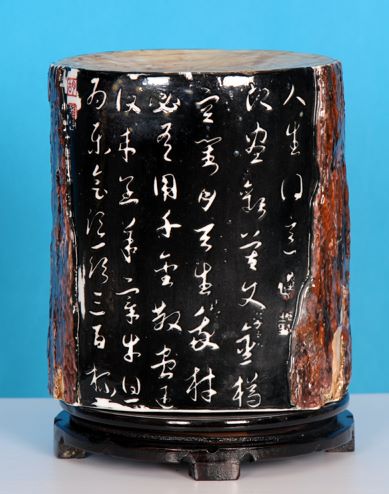 人生得意
須盡歡莫使金樽
空對月天生我材
必有用千金散盡還
復來烹羊宰牛且
為樂會須一飲三百杯